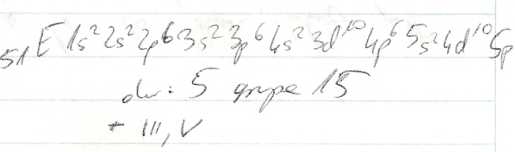 51E 1s²2s²2p⁶3s²3p⁶4s²3d¹⁰4p⁶5s²4d¹⁰5p
5 grupe 15
+ III, V